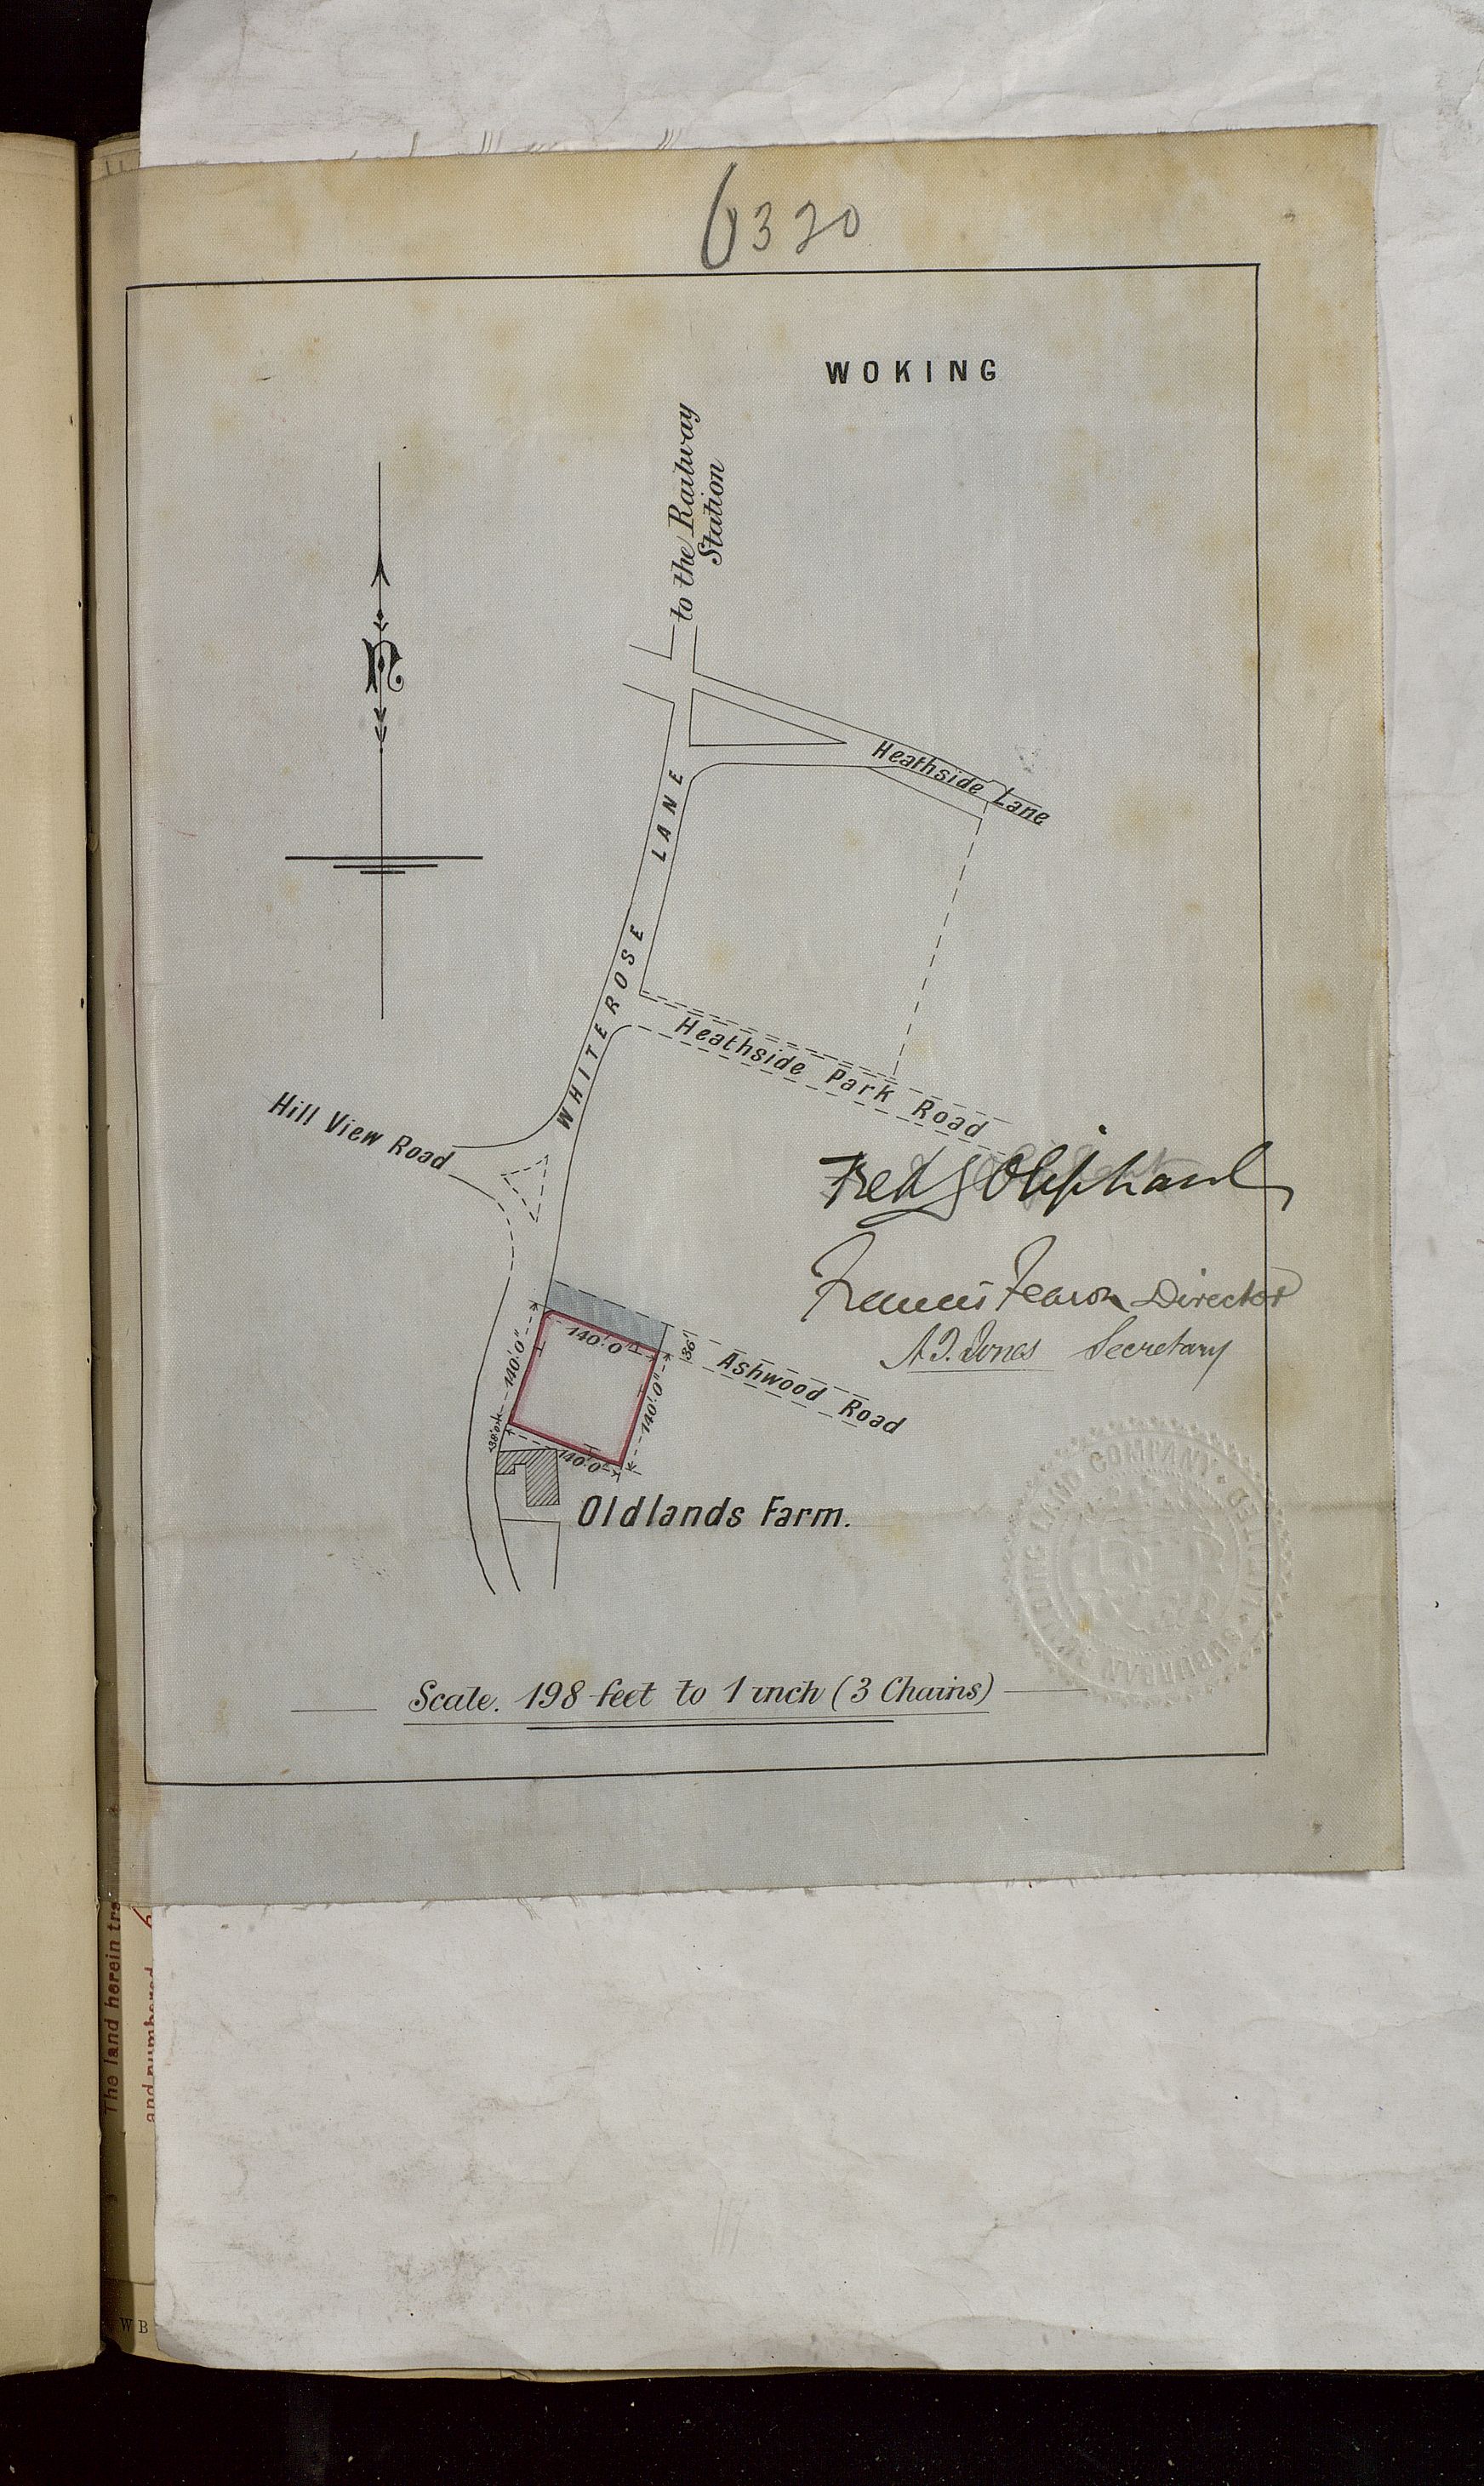 6320
WOKING
to the Railway
Station
N
Heathside Lane
WHITEROSE LANE
Heathside Park Road
Hill View Road
Fred J Oliphant
Francis Fearon Director
A. D. Jones Secretary
140'.0"
36'
140'.0"
140'.0"
140'.0"
Ashwood Road
Oldlands Farm.
LAND COMPANY • LIMITED • SUBURBAN
Scale. 198 feet to 1 inch (3 Chains)
The land herein tra
and numbered 6
W B